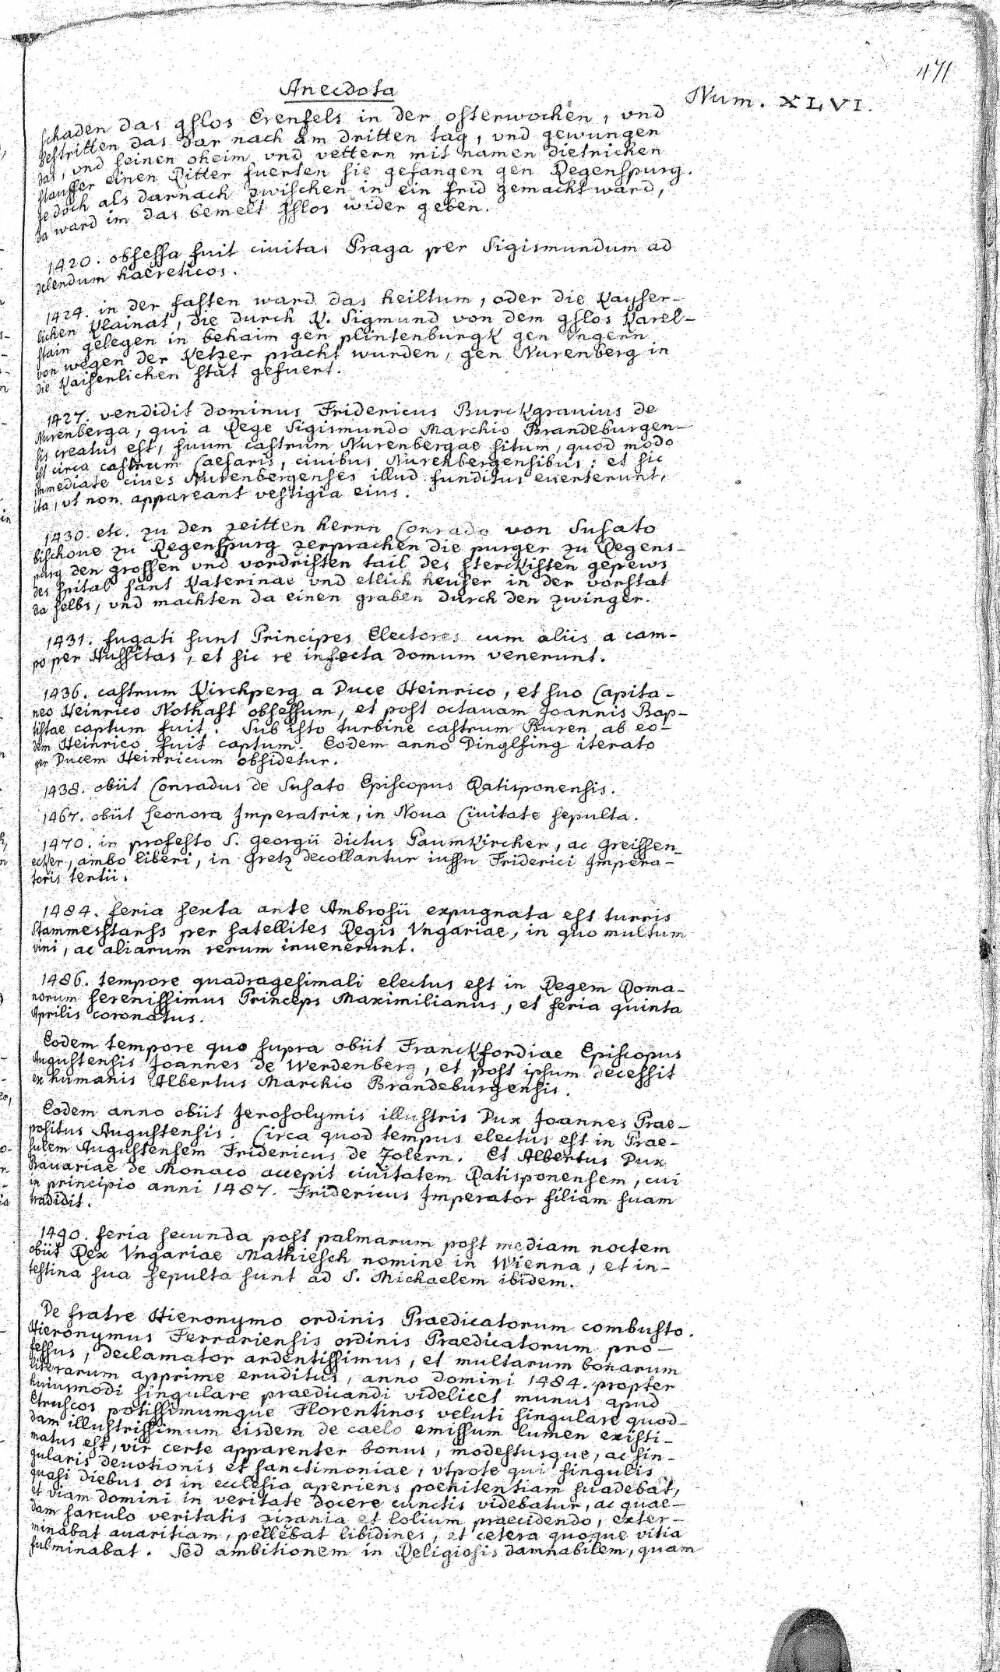 471
Anecdota
Num. XLVI.
schaden das gslos Erenfels in der osterwochen, und
bestritten das dar nach am dritten tag, vnd gewungen
das, vnd seinen oheim vnd vettern mit namen dietrichen
stauffer einen Ritter fuerten sie gefangen gen Regenspurg.
je doch als darnach zwischen in ein frid gemacht ward,
da ward im das bemelt gslos wider geben.
1420. obsessa fuit civitas Praga per Sigismundum ad
delendum haereticos.
1424. in der fasten ward das heiltum, oder die Kayser-
lichen Klainat, die durch K. Sigmund von dem gslos Karel-
stain gelegen in behaim gen plintenburgk gen Vngern
von wegen der Ketzer pracht wurden, gen Nurenberg in
die Kaiserlichen stat gefuert.
1427. vendidit dominus Fridericus Burckgrauius de
Nurenberga, qui a Rege Sigismundo Marchio Brandeburgen-
sis creatus est, suum castrum Nurenbergae situm, quod modo
est circa castrum Caesaris, ciuibus Nurenbergensibus; et sic
immediate ciues Nurenbergenses illud funditus euerterunt,
ita, vt non appareant vestigia eius.
1430. etc. zu den zeitten herrn Conrado von Susato
bischoue zu Regenspurg zerprachen die purger zu Regens-
purg den grossen vnd vordristen tail des sterckisten gepews
des spitals sant Katerinae vnd etlich heuser in der vorstat
da selbs, vnd machten da einen graben durch den zwinger.
1431. fugati sunt Principes Electores cum aliis a cam-
po per Hussitas, et sic re infecta domum venerunt.
1436. castrum Kirchperg a Duce Heinrico, et suo Capita-
neo Heinrico Nothaft obsessum, et post octauam Joannis Bap-
tistae captum fuit. Sub isto turbine castrum Buren ab eo-
dem Heinrico fuit captum. Eodem anno Dinglfing iterato
per Ducem Heinricum obsidetur.
1438. obiit Conradus de Susato Episcopus Ratisponensis.
1467. obiit Leonora Imperatrix, in Noua Ciuitate sepulta.
1470. in profesto S. Georgii dictus Paumkircher, ac Greissen-
ecker, ambo liberi, in Gretz decollantur iussu Friderici Impera-
toris tertii.
1484. feria sexta ante Ambrosii expugnata est turris
Stammerstarss per satellites Regis Vngariae, in quo multum
vini, ac aliarum rerum inuenerunt.
1486. tempore quadragesimali electus est in Regem Roma-
norum serenissimus Princeps Maximilianus, et feria quinta
Aprilis coronatus.
Eodem tempore quo supra obiit Franckfordiae Episcopus
Augustensis Joannes de Werdenberg, et post ipsum decessit
ex humanis Albertus Marchio Brandeburgensis.
Eodem anno obiit Jerosolymis illustris Dux Joannes Prae-
positus Augustensis. Circa quod tempus electus est in Prae-
sulem Augustensem Fridericus de Zolern. Et Albertus Dux
Bauariae de Monaco accepit ciuitatem Ratisponensem, cui
in principio anni 1487. Fridericus Imperator filiam suam
tradidit.
1490. feria secunda post palmarum post mediam noctem
obiit Rex Vngariae Mathiesch nomine in Wienna, et in-
testina sua sepulta sunt ad S. Michaelem ibidem.
De fratre Hieronymo ordinis Praedicatorum combusto.
Hieronymus Ferrariensis ordinis Praedicatorum pro-
fessus, declamator ardentissimus, et multarum bonarum
literarum apprime eruditus, anno domini 1484. propter
huiusmodi singulare praedicandi videlicet munus apud
Etruscos potissimumque Florentinos veluti singulare quod-
dam illustrissimum eisdem de caelo emissum lumen existi-
matus est, vir certe apparenter bonus, modestusque, ac sin-
gularis deuotionis et sanctimoniae, vtpote qui singulis
quasi diebus os in ecclesia aperiens poenitentiam suadebat,
et viam domini in veritate docere cunctis videbatur, ac quae-
dam sarculo veritatis zizania et lolium praecidendo, exter-
minabat auaritiam, pellebat libidines, et cetera quoque vitia
fulminabat. Sed ambitionem in Religiosis damnabilem, quam